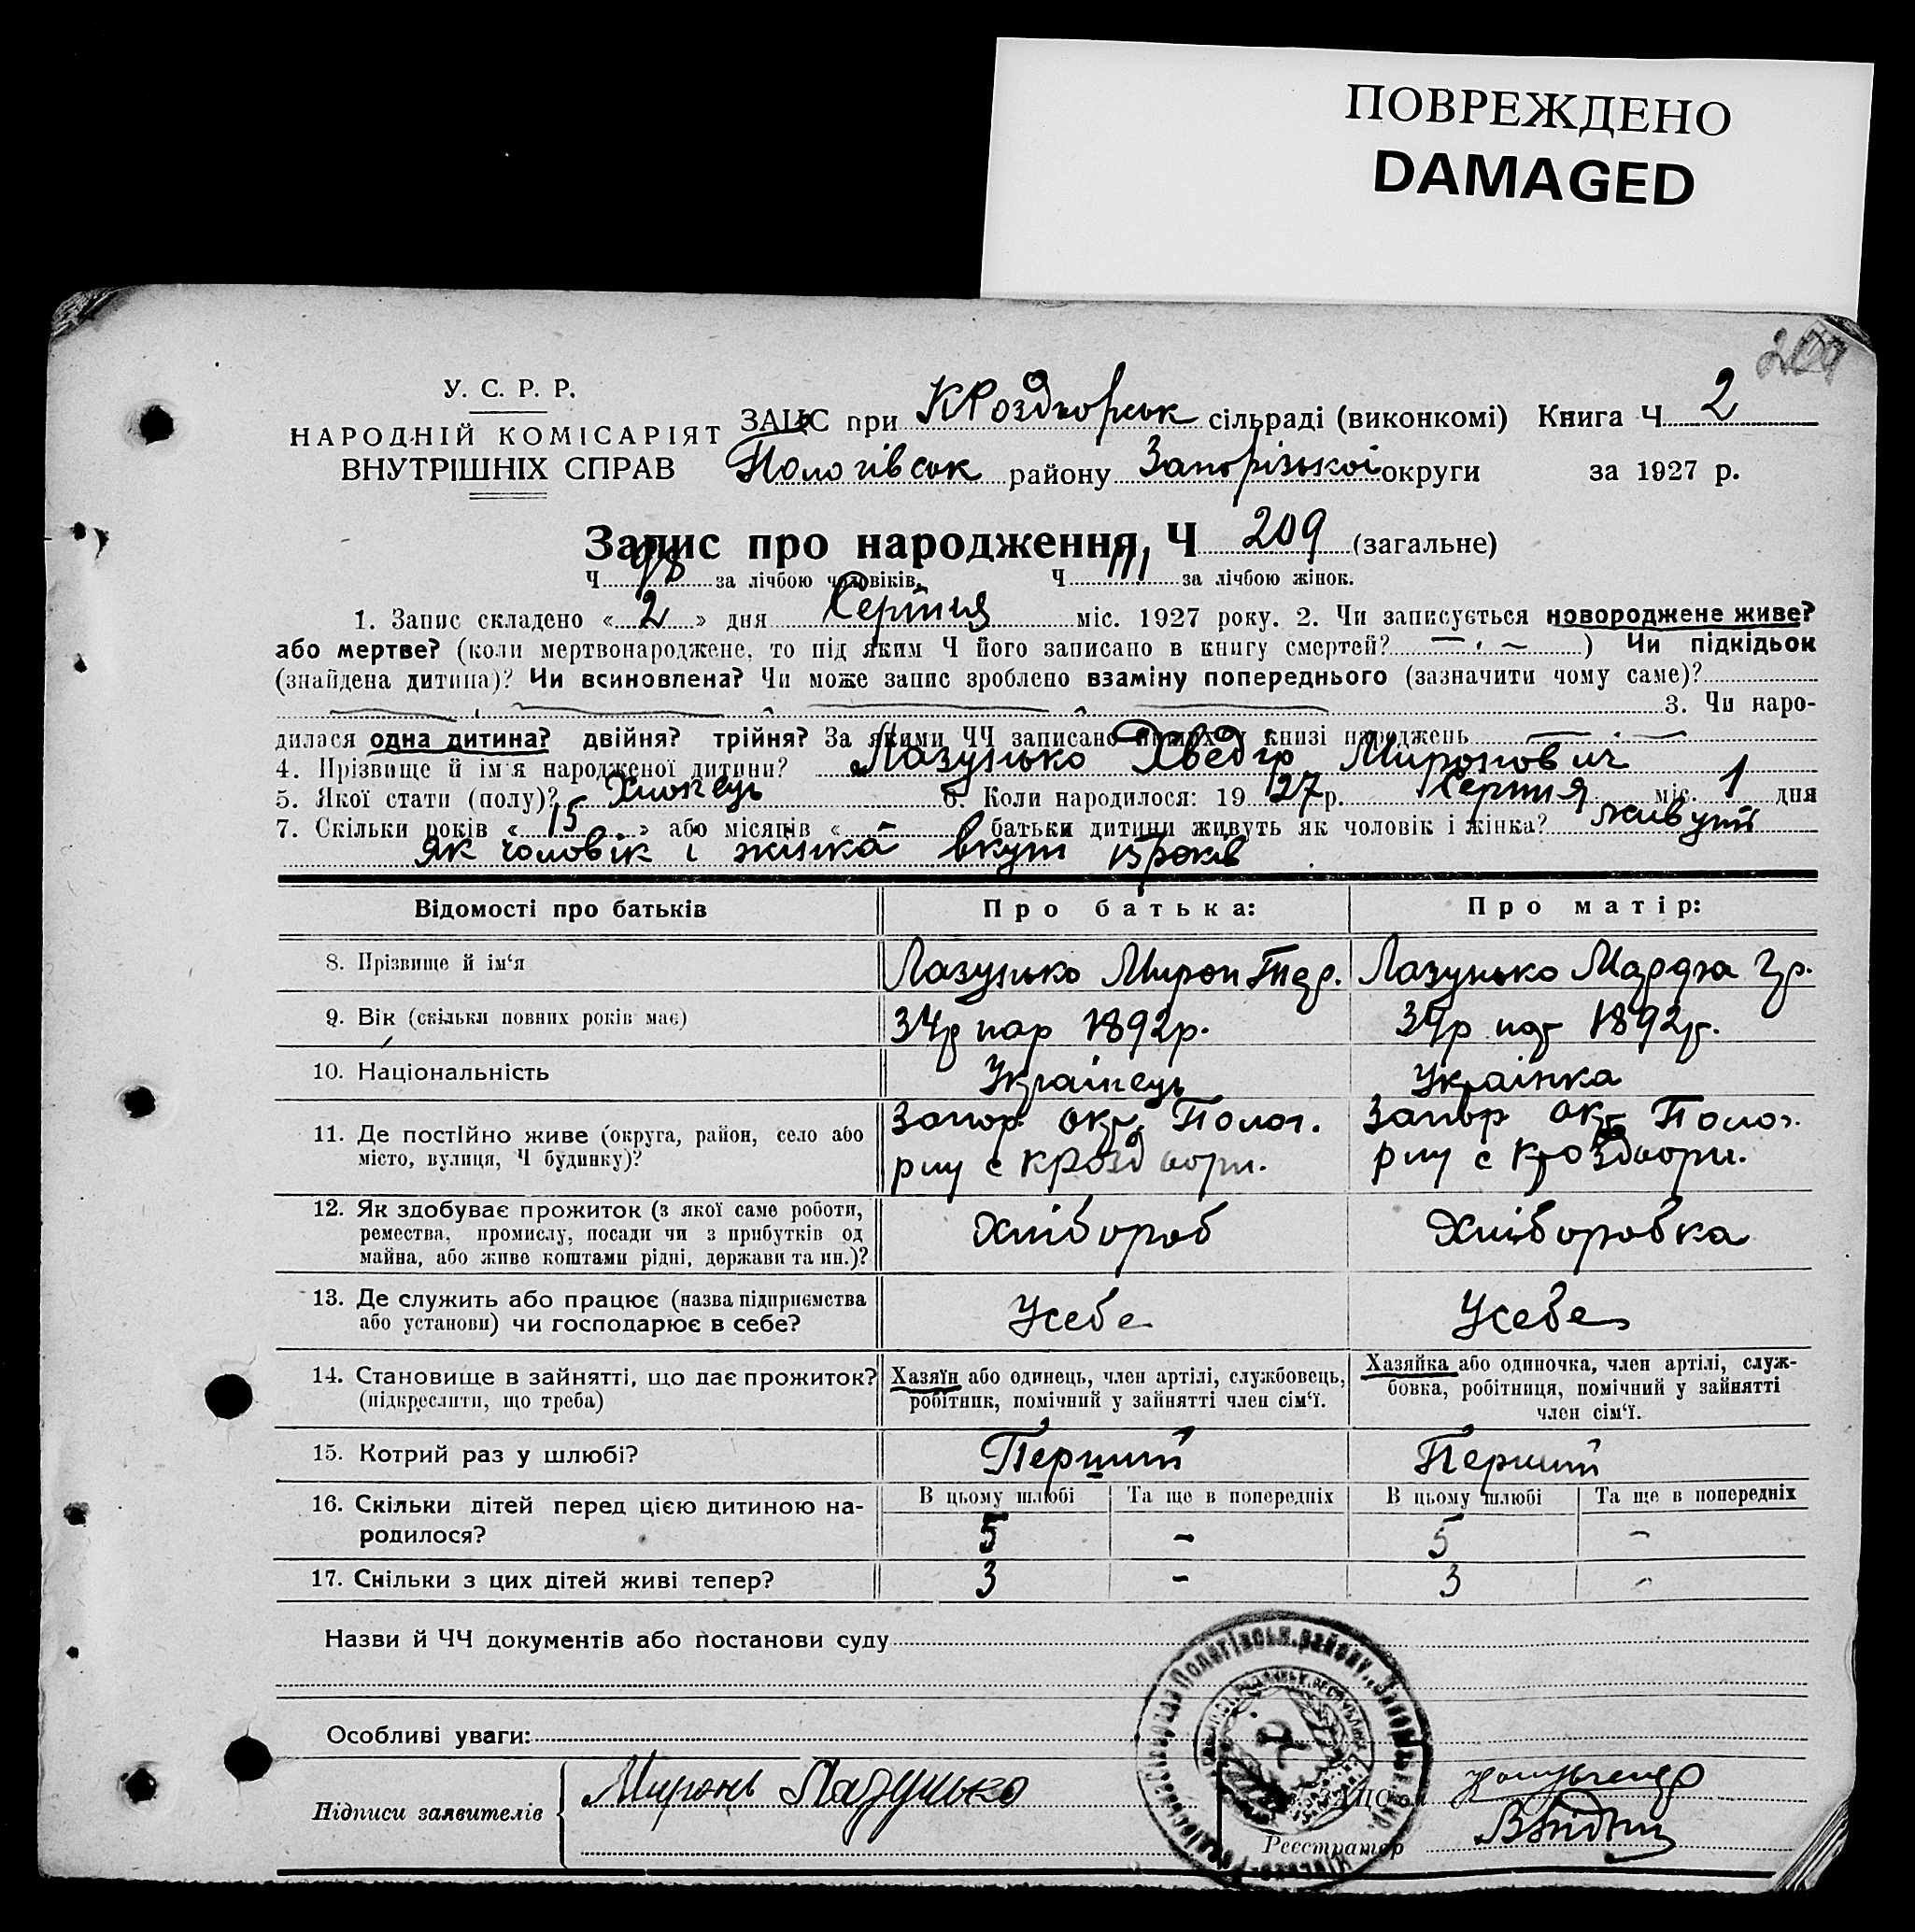 ПОВРЕЖДЕНО
DAMAGED
У. С. Р. Р.
НАРОДНІЙ КОМІСАРІЯТ
ВНУТРІШНІХ СПРАВ
ЗАЦС при КРоздорськ сільраді (виконкомі) Книга Ч 2
Пологівськ району Запорізької округи за 1927 р.
Запис про народження, Ч 209 (загальне)
Ч 98 за лічбою чоловіків, Ч 111 за лічбою жінок.
1. Запис складено « 2 » дня Серпня міс. 1927 року. 2. Чи записується новороджене живе?
або мертве? (коли мертвонароджене, то під яким Ч його записано в книгу смертей? ) Чи підкідьок
(знайдена дитина)? Чи всиновлена? Чи може запис зроблено взаміну попереднього (зазначити чому саме)?
3. Чи наро-
дилася одна дитина? двійня? трійня? За якими ЧЧ записано в книзі народжень
4. Прізвище й ім'я народженої дитини? Лазунько Хведір Миронович
5. Якої стати (полу)? Хлопець 6. Коли народилося: 19 27 р. Серпня міс. 1 дня
7. Скільки років « 15 » або місяців « - батьки дитини живуть як чоловік і жінка? живуть
як чоловік і жінка вкупі 15 років
Відомості про батьків
Про батька:
Про матір:
8. Прізвище й ім'я Лазунько Мирон Лазунько
9. Вік (скільки повних років має) 34р нар 1892р. 34р 1892р.
10. Національність Українець Українка
11. Де постійно живе (округа, район, село або
місто, вулиця, Ч будинку)?
Запор. окр. Полог.
рну с кроздори.
Запор окр Полог.
рну с кроздори.
12. Як здобуває прожиток (з якої саме роботи,
ремества, промислу, посади чи з прибутків од
майна, або живе коштами рідні, держави та ин.)?
Хлібороб Хліборобка
13. Де служить або працює (назва підприємства
або установи) чи господарює в себе?
Усебе Усебе
14. Становище в зайнятті, що дає прожиток?
(підкреслити, що треба)
Хазяїн або одинець, член артілі, службовець,
робітник, помічний у зайнятті член сім'ї.
Хазяйка або одиночка, член артілі, служ-
бовка, робітниця, помічний у зайнятті
член сім'ї.
15. Котрий раз у шлюбі? Перший Перший
16. Скільки дітей перед цією дитиною на-
родилося?
В цьому шлюбі Та ще в попередніх В цьому шлюбі Та ще в попередніх
5 - 5 -
17. Скільки з цих дітей живі тепер? 3 - 3 -
Назви й ЧЧ документів або постанови суду
Особливі уваги:
Підписи заявителів Миронъ Лазунько
Реєстратор